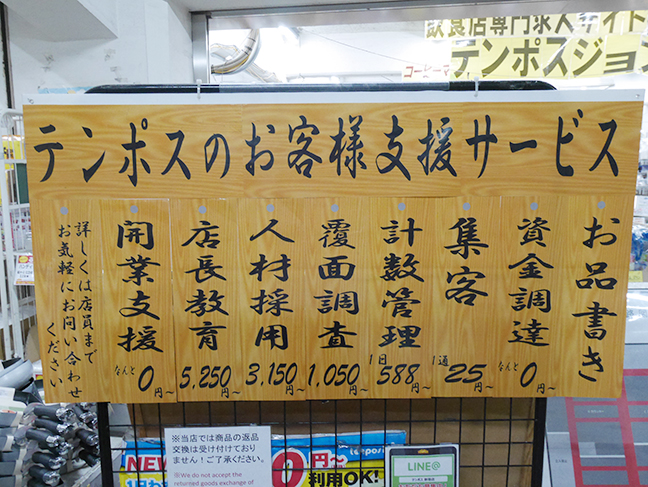 飲食店専門求人サイト
テンポスジョ
コーヒーマ
テンポスのお客様支援サービス
お品書き
資金調達
なんと0円〜
集客
1通25円〜
計数管理
1日588円〜
覆面調査
1,050円〜
人材採用
3,150円〜
店長教育
5,250円〜
開業支援
なんと0円〜
詳しくは店員まで
お気軽にお問い合わせ
ください
※当店では商品の返品
交換は受け付けておりま
せん!ご了承ください。
※We do not accept the
returned goods,exchange of
NEW
0円〜
利用OK!
tenpos
LINE@